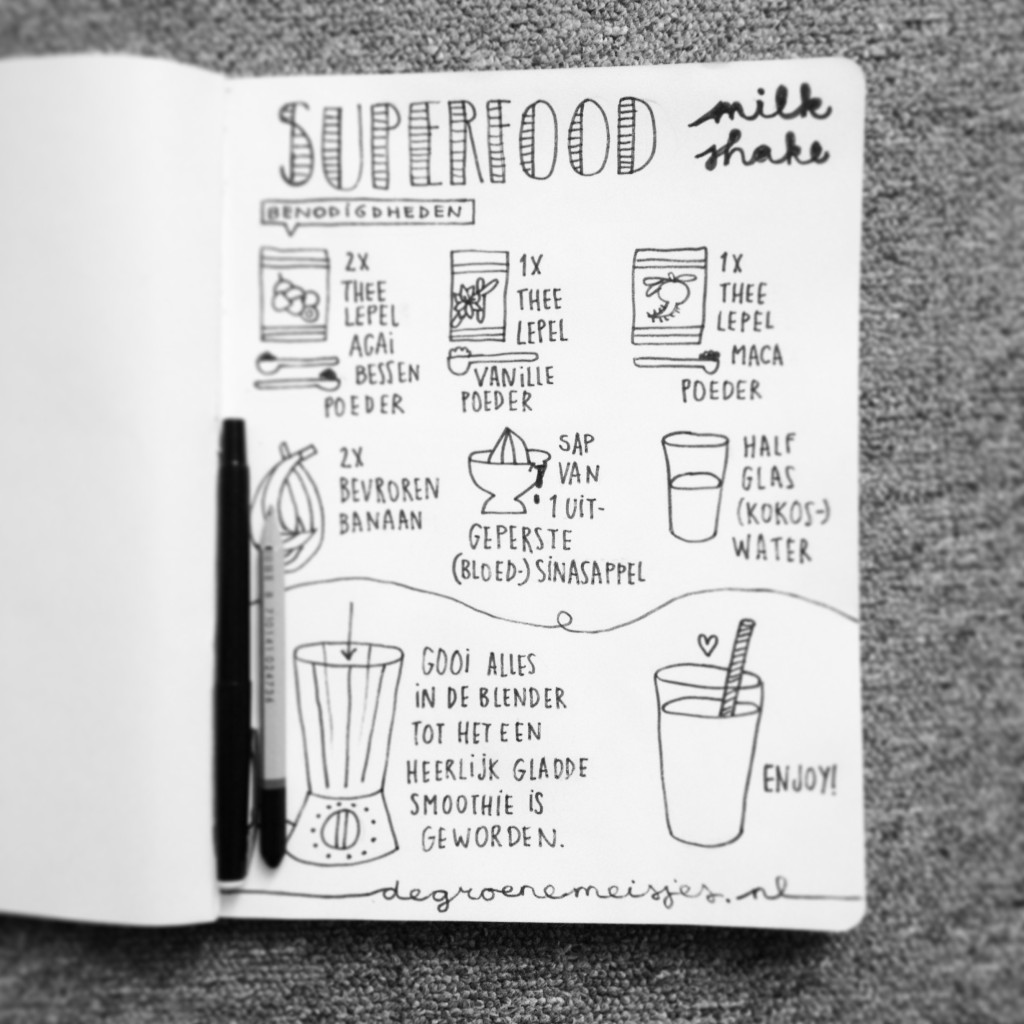 SUPERFOOD
milk
shake
BENODIGDHEDEN
2X
THEE
LEPEL
ACAI
BESSEN
POEDER
1X
THEE
LEPEL
VANILLE
POEDER
1X
THEE
LEPEL
MACA
POEDER
2X
BEVROREN
BANAAN
SAP
VAN
1 UIT-
GEPERSTE
(BLOED-) SINASAPPEL
HALF
GLAS
(KOKOS-)
WATER
GOOI ALLES
IN DE BLENDER
TOT HET EEN
HEERLIJK GLADDE
SMOOTHIE IS
GEWORDEN.
ENJOY!
degroenemeisjes.nl